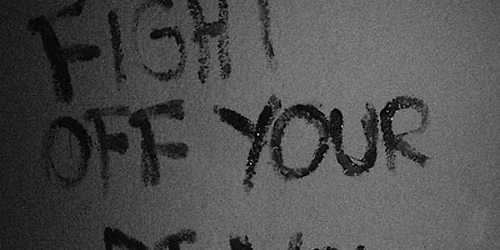 FIGHT
OFF YOUR